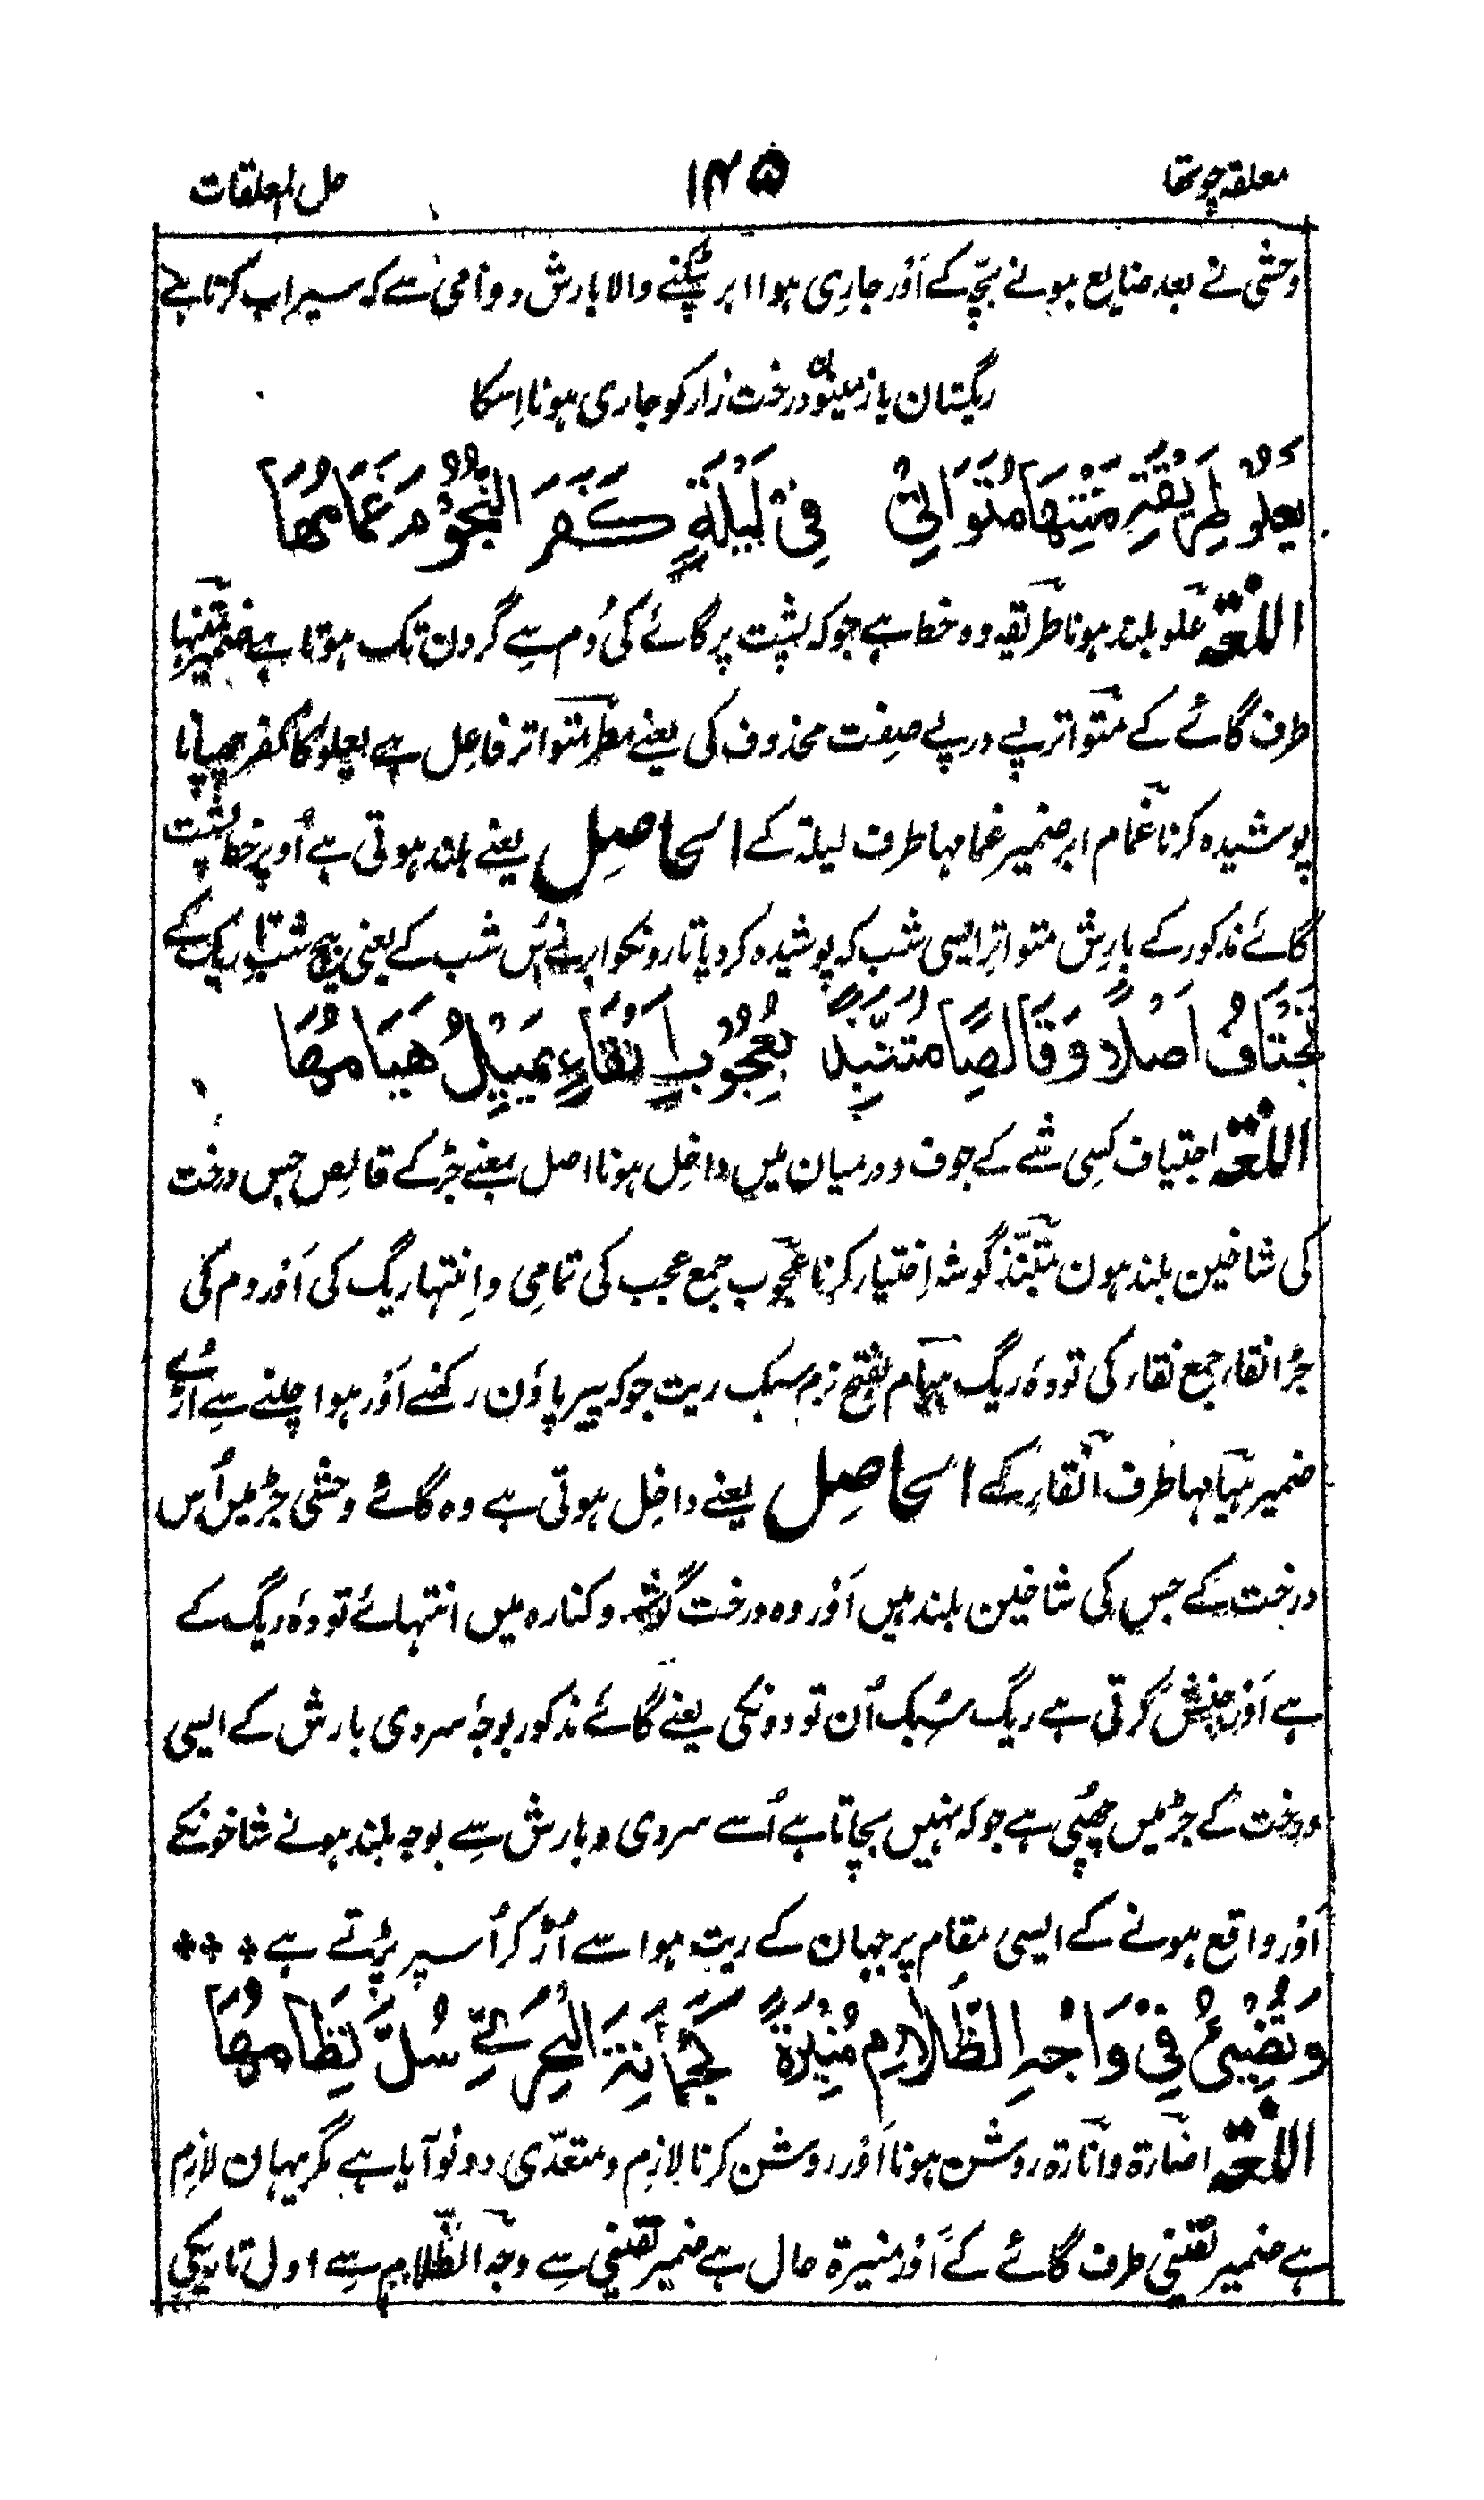 معلقہ چوتھا ۱۴۵ حل المعلقات
وحشی نے بعد ضایع ہونے بچّہ کے اَور جارِی ہوا ابر ٹپکنے والا بارش دوامی سے کہ سیراب کرتا ہے
ریگستان یا زمینوں درخت زار کو جاری ہونا اِسکا
يَعْلُوْ طَرِيْقَةَ مَتْنِهَا مُتَوَاتِرٌ فِیْ لَيْلَةٍ كَفَرَ النُّجُوْمَ غَمَامُهَا
اللغۃ علو بلند ہونا طریقہ وہ خط ہے جو کہ پشت پر گائے کی دُم سے گردن تک ہوتا ہے ضمیر متنہا
طرف گائے کے متواتر پے درپے صفت محذوف کی یعنے مطر متواتر فاعل ہے یعلو کا کفر چھپانا
پوشیدہ کرنا غمام ابر ضمیر غمامہا طرف لیلۃ کے الحاصِل یعنے بلند ہوتی ہے اُوپر خط پشت
گائے مذکور کے بارِش متواتر ایسی شب کہ پوشیدہ کر دیا تارونکو ابر نے اُس شب کے یعنی بیچ شب تاریک کے
تَجْتَافُ اَصْلًا وَّقَالِصًا مُّتَنَبِّذًا بِعُجُوْبِ اَنْقَاءٍ يَمِيْلُ هَيَامُهَا
اللغۃ اجتیاف کسِی شے کے جوف و درمیان میں داخِل ہونا اصل بمعنے جڑ کے قالِص جس درخت
کی شاخین بلند ہون متنبّذ گوشہ اِختیار کرنا عجوب جمع عجب کی تمامِی و اِنتہا ریگ کی اَور دم کی
جڑ انقار جمع نقار کی تودۂ ریگ ہیام بفتح نرم سبک ریت جو کہ پیر پاؤن رکھنے اَور ہوا چلنے سے اُڑے
ضمیر ہیامہا طرف انقار کے الحاصِل یعنے داخِل ہوتی ہے وہ گائے وحشی جڑ میں اُس
درخت کے جس کی شاخین بلند ہیں اَور وہ درخت گوشہ و کنارہ میں انتہائے تودۂ ریگ کے
ہے اَور جنبش کرتی ہے ریگ سُبک اُن تودونکی یعنے گائے مذکور بوجۂ سردی بارش کے ایسی
درخت کے جڑ میں چھپی ہے جو کہ نہیں بچاتا ہے اُسے سردی و بارش سے بوجہ بلند ہونے شاخونکے
اَور واقع ہونے کے ایسی مقام پر جہان کے ریت ہوا سے اُڑ کر اُسپر پڑتے ہے
وَتُضِيْئُ فِیْ وَجْهِ الظَّلَامِ مُنِيْرَةً كَجُمَانَةِ الْبَحْرِيِّ سُلَّ نِظَامُهَا
اللغۃ اضارۃ و انارۃ روشن ہونا اَور روشن کرنا لازِم و متعدّی دونو آیا ہے مگر یہان لازِم
ہے ضمیر تضئی طرف گائے کے اَور منیرۃ حال ہے ضمیر تضئی سے وجہ الظّلام سے اول تاریکی